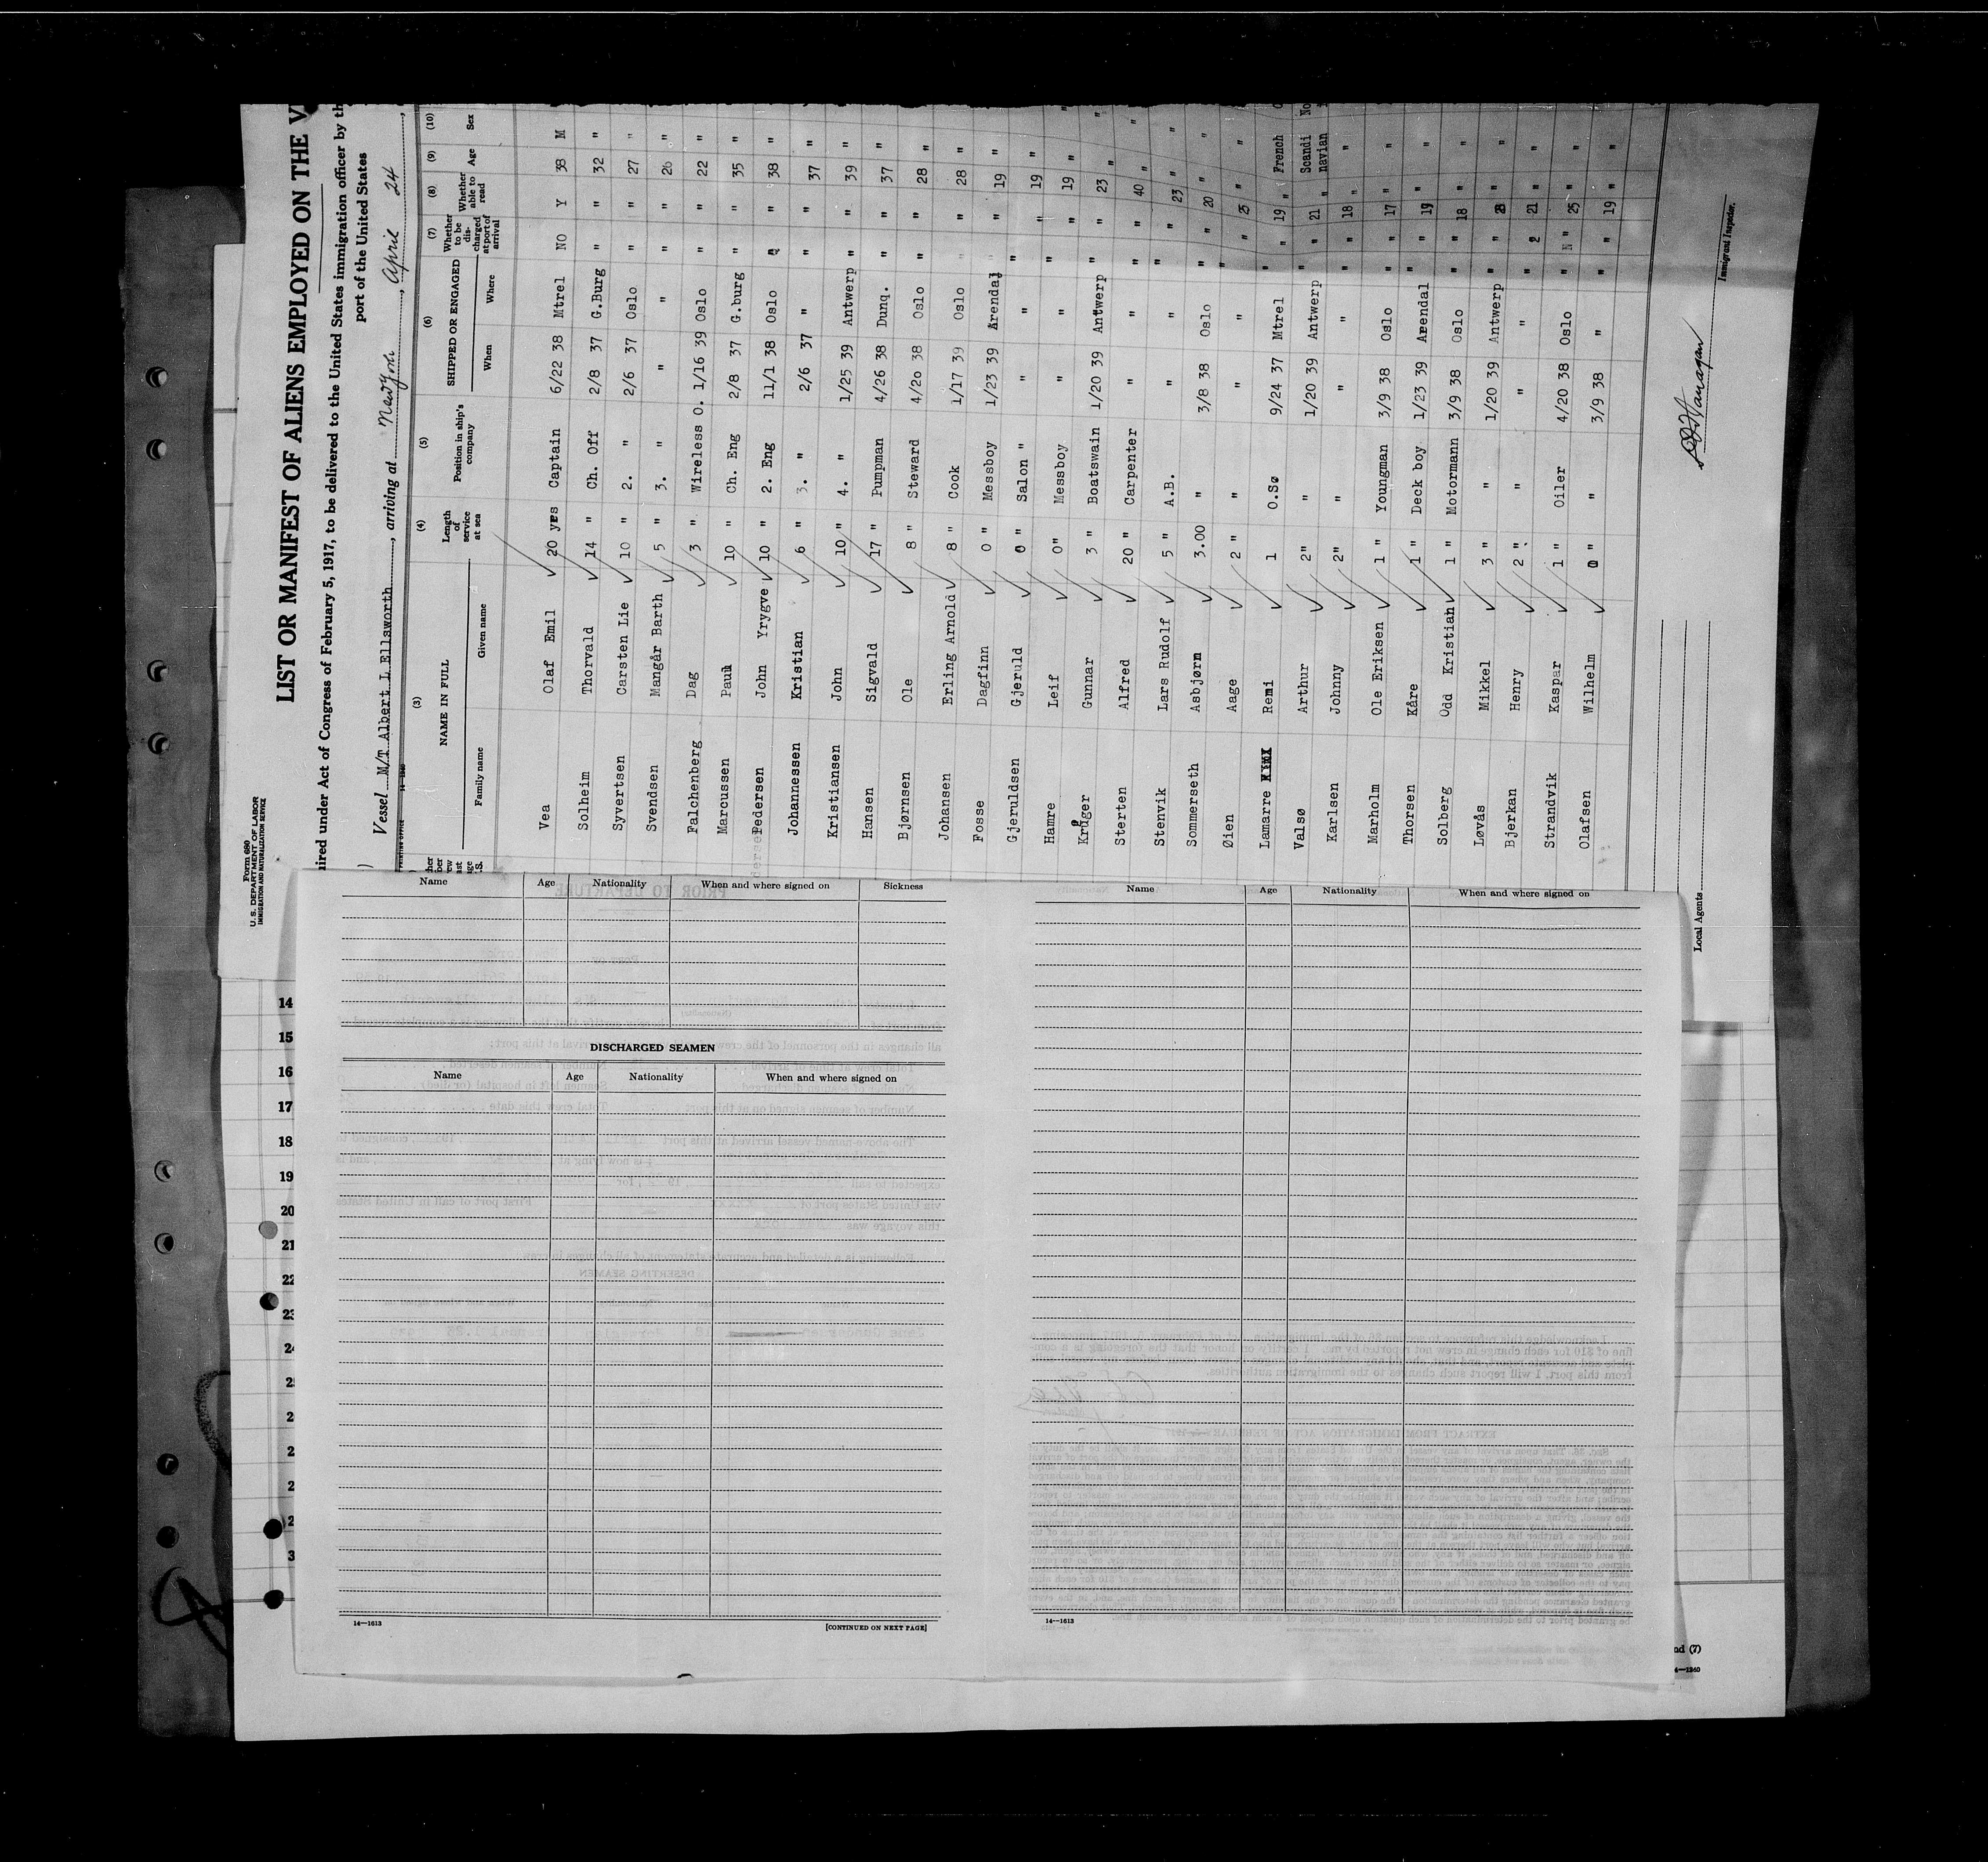 Form 680
U. S. DEPARTMENT OF LABOR
IMMIGRATION AND NATURALIZATION SERVICE
LIST OR MANIFEST OF ALIENS EMPLOYED ON THE V
ired under Act of Congress of February 5, 1917, to be delivered to the United States immigration officer by th
port of the United States
Vessel M/T Albert L Ellsworth, arriving at New York, April 24,
(3) (4) (5) (6) (7) (8) (9) (10)
NAME IN FULL Length of service at sea Position in ship's company SHIPPED OR ENGAGED Whether to be discharged at port of arrival Whether able to read Age Sex
Family name Given name When Where
Vea Olaf Emil 20 yrs Captain 6/22 38 Mtrel NO Y 38 M
Solheim Thorvald 14 " Ch. Off 2/8 37 G.Burg " " 32 "
Syvertsen Carsten Lie 10 " 2. " 2/6 37 Oslo " " 27 "
Svendsen Mangår Barth 5 " 3. " " " " " 26 "
Falchenberg Dag 3 " Wireless O. 1/16 39 Oslo " " 22 "
Marcussen Paul 10 " Ch. Eng 2/8 37 G.burg " " 35 "
Pedersen John Yrygve 10 " 2. Eng 11/1 38 Oslo " " 38 "
Johannessen Kristian 6 " 3. " 2/6 37 " " " 37 "
Kristiansen John 10 " 4. " 1/25 39 Antwerp " " 39 "
Hansen Sigvald 17 " Pumpman 4/26 38 Dunq. " " 37 "
Bjørnsen Ole 8 " Steward 4/20 38 Oslo " " 28 "
Johansen Erling Arnold 8 " Cook 1/17 39 Oslo " " 28 "
Fosse Dagfinn 0 " Messboy 1/23 39 Arendal " " 19 "
Gjeruldsen Gjeruld 0 " Salon " " " " " 19 "
Hamre Leif 0" Messboy " " " " 19 " "
Krüger Gunnar 3 " Boatswain 1/20 39 Antwerp " " 23 " "
Sterten Alfred 20 " Carpenter " " " " 40 " "
Stenvik Lars Rudolf 5 " A.B. " " " " 23 " "
Sommerseth Asbjørn 3.00 " 3/8 38 Oslo " " 20 " "
Øien Aage 2 " " " " " " 25 " "
Lamarre Remi 1 O.Sø 9/24 37 Mtrel " " 19 " French
Valsø Arthur 2" " 1/20 39 Antwerp " " 21 " Scandi navian No
Karlsen Johnny 2" " " " " " 18 " "
Marholm Ole Eriksen 1 " Youngman 3/9 38 Oslo " " 17 " "
Thorsen Kåre 1 " Deck boy 1/23 39 Arendal " " 19 " "
Solberg Odd Kristian 1 " Motormann 3/9 38 Oslo " " 18 " "
Løvås Mikkel 3 " " 1/20 39 Antwerp " " " "
Bjerkan Henry 2 " " " " " 21 " "
Strandvik Kaspar 1 " Oiler 4/20 38 Oslo " " 25 " "
Olafsen Wilhelm 0 " " 3/9 38 " " " 19 " "
Local Agents
Immigrant Inspector.
Name Age Nationality When and where signed on Sickness
DISCHARGED SEAMEN
Name Age Nationality When and where signed on
14—1613 [CONTINUED ON NEXT PAGE]
Name Age Nationality When and where signed on
14—1613
14
15
16
17
18
19
20
21
22
nd (7)